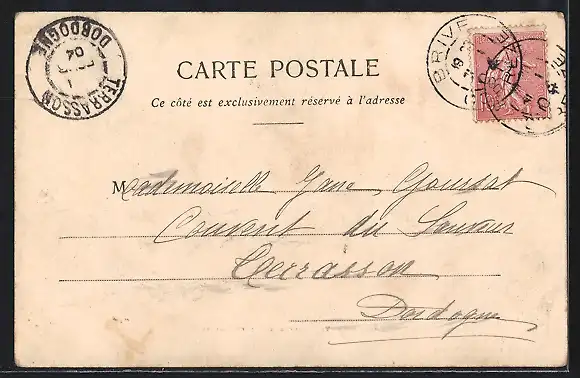 TERRASSON
DORDOGNE
04
BRIVE
CARTE POSTALE
Ce côté est exclusivement réservé à l'adresse
Mademoiselle Jane Goursat
Couvent du Sauveur
Terrasson
Dordogne